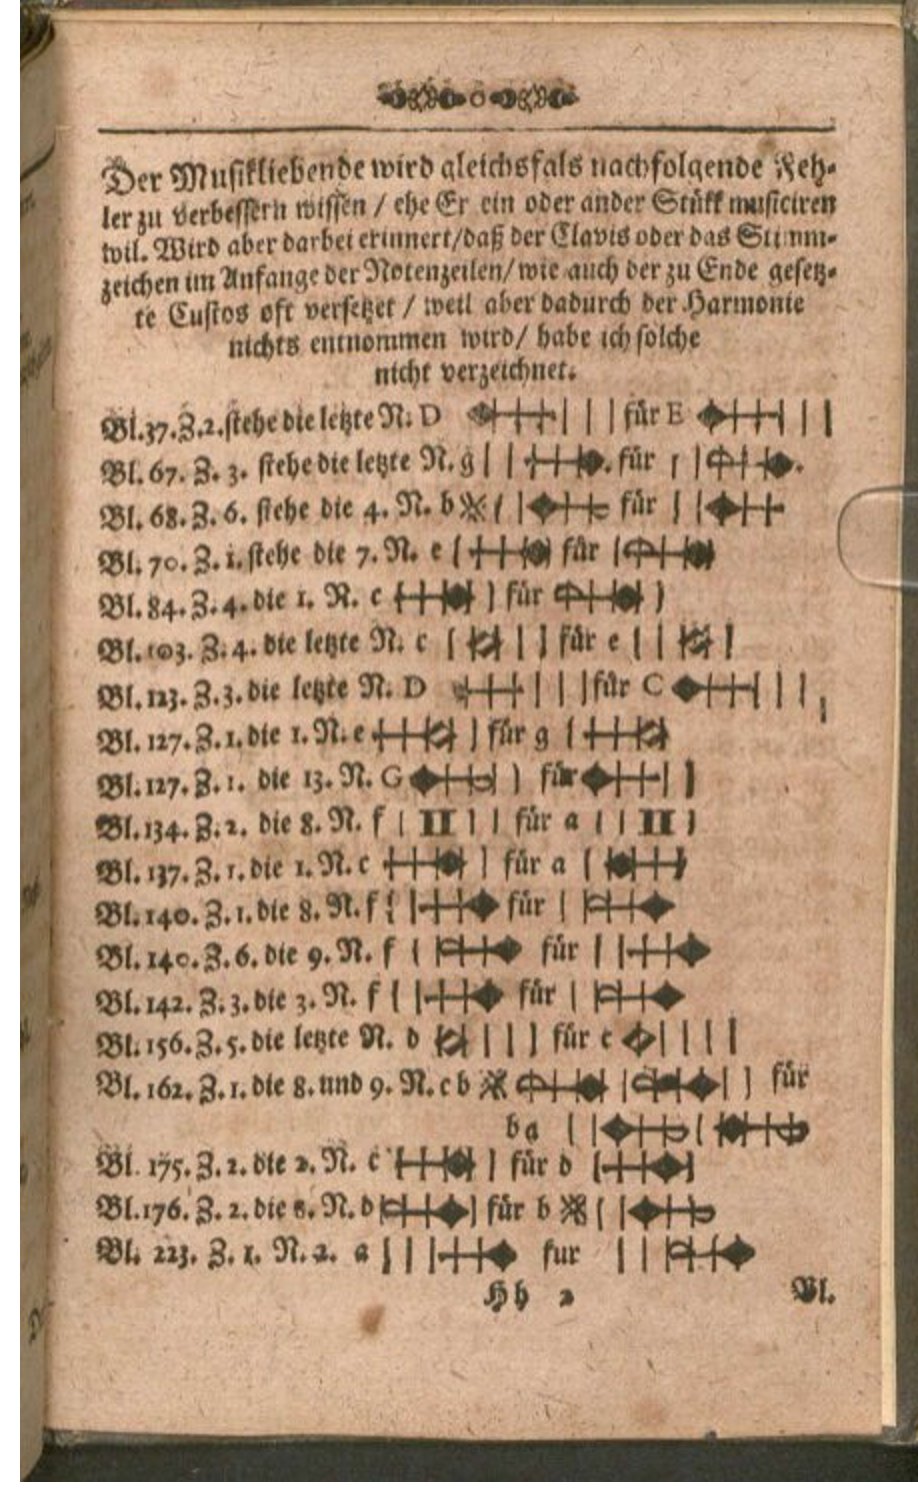 Der Musikliebende wird gleichsfals nachfolgende Feh-
ler zu verbessern wissen / ehe Er ein oder ander Stükk musiciren
wil. Wird aber darbei erinnert/daß der Clavis oder das Stimm-
zeichen im Anfange der Notenzeilen/wie auch der zu Ende gesetz-
te Custos oft versetzet / weil aber dadurch der Harmonie
nichts entnommen wird/ habe ich solche
nicht verzeichnet.
Bl.37.Z.2.stehe die letzte N. D für E
Bl. 67. Z. 3. stehe die letzte N. g für
Bl. 68. Z. 6. stehe die 4. N. b für
Bl. 70. Z. 1. stehe die 7. N. e für
Bl. 84. Z. 4. die 1. N. c für
Bl. 103. Z. 4. die letzte N. c für e
Bl. 123. Z. 3. die letzte N. D für C
Bl. 127. Z. 1. die 1. N. e für g
Bl. 127. Z. 1. die 13. N. G für
Bl. 134. Z. 2. die 8. N. f für a
Bl. 137. Z. 1. die 1. N. c für a
Bl. 140. Z. 1. die 8. N. f für
Bl. 140. Z. 6. die 9. N. f für
Bl. 142. Z. 3. die 3. N. f für
Bl. 156. Z. 5. die letzte N. d für c
Bl. 162. Z. 1. die 8. und 9. N. c b für
b a
Bl. 175. Z. 2. die 2. N. c für d
Bl. 176. Z. 2. die 8. N. d für b
Bl. 223. Z. 1. N. 2. a fur
Hh 2 Bl.